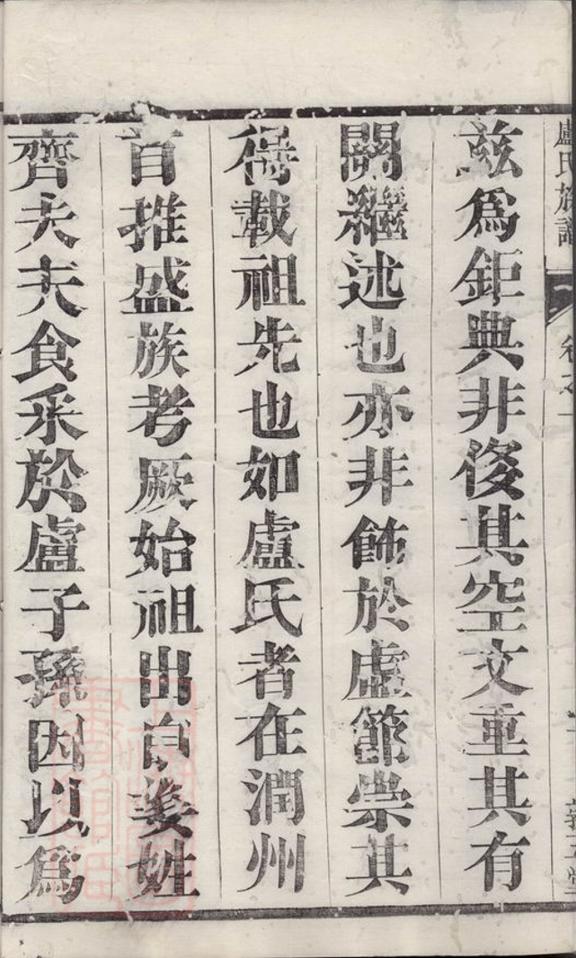 盧氏族譜 卷之一
茲爲鉅典非侈其空文重其有
關繼述也亦非飾於虛節崇其
得載祖先也如盧氏者在潤州
首推盛族考厥始祖出自姜姓
齊大夫食采於盧子孫因以爲